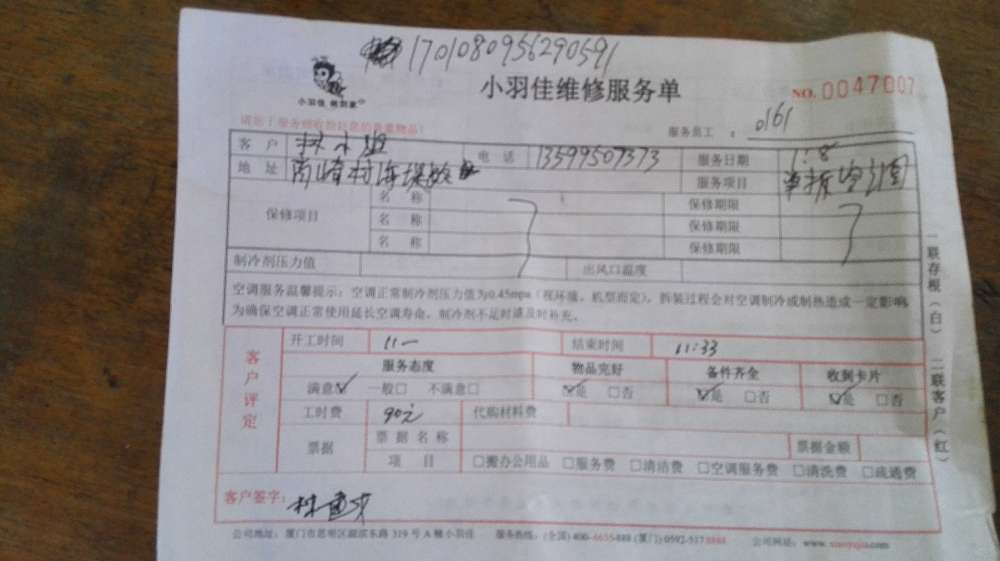 1701080956290591
小羽佳维修服务单
NO. 0047007
小羽佳 装到家
服务员工 : 0161
客户 林小姐 电话 13599507373 服务日期 1.8
地址 高崎村海堤路 服务项目
保修项目 名称 保修期限
名称 保修期限
名称 保修期限
制冷剂压力值 出风口温度
空调服务温馨提示:空调正常制冷剂压力值为0.45mpa(视环境、机型而定),拆装过程会对空调制冷或制热造成一定影响
为确保空调正常使用延长空调寿命,制冷剂不足时请及时补充。
客户评定
开工时间 11 一 结束时间 11:33
服务态度 物品完好 备件齐全 收到卡片
满意☑ 一般□ 不满意□ ☑是 □否 ☑是 □否 ☑是 □否
工时费 90元 代购材料费
票据 票据名称 票据金额
项目 □搬办公用品 □服务费 □清洁费 □空调服务费 □清洗费 □疏通费
客户签字:
公司地址:厦门市思明区湖滨东路 319 号 A 幢小羽佳 服务热线:(全国) 400-4655-888 (厦门) 0592-5178888 公司网址:www.xiaoyujia.com
一联存根(白) 二联客户(红)